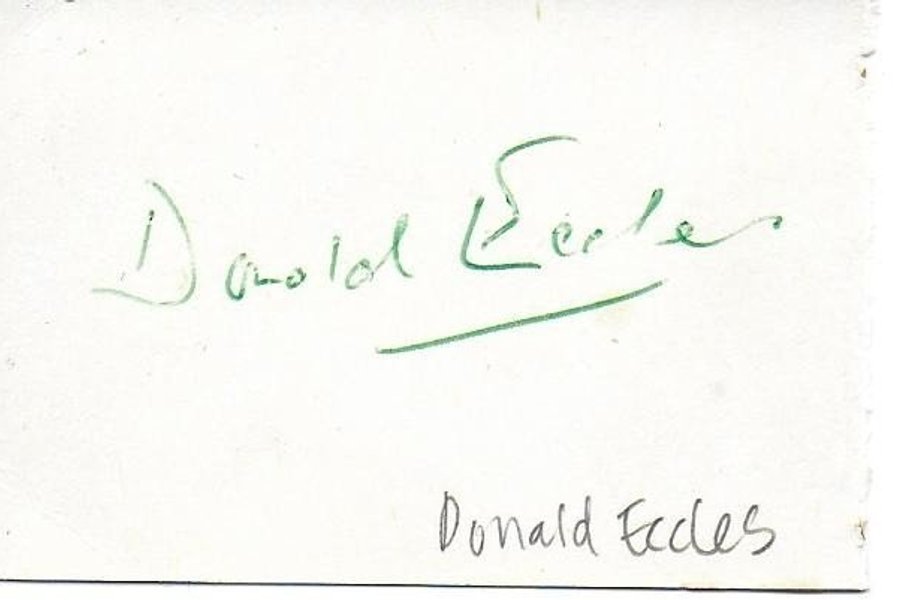 Donald Eccles
Donald Eccles